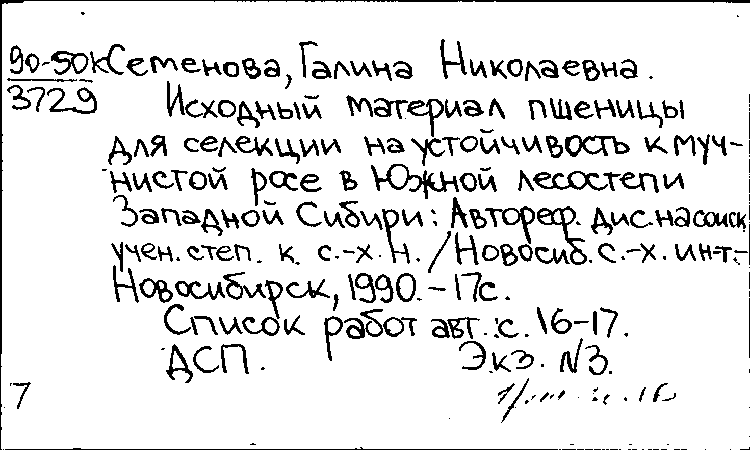 90-50к Семенова, Галина Николаевна.
3729 Исходный материал пшеницы
для селекции на устойчивость к муч-
нистой росе в Южной лесостепи
Западной Сибири: Автореф. дис. на соиск
учен. степ. к. с.-х. н. / Новосиб. с.-х. ин-т.-
Новосибирск, 1990.-17с.
Список работ авт.: с. 16-17.
ДСП. Экз. N3.
7